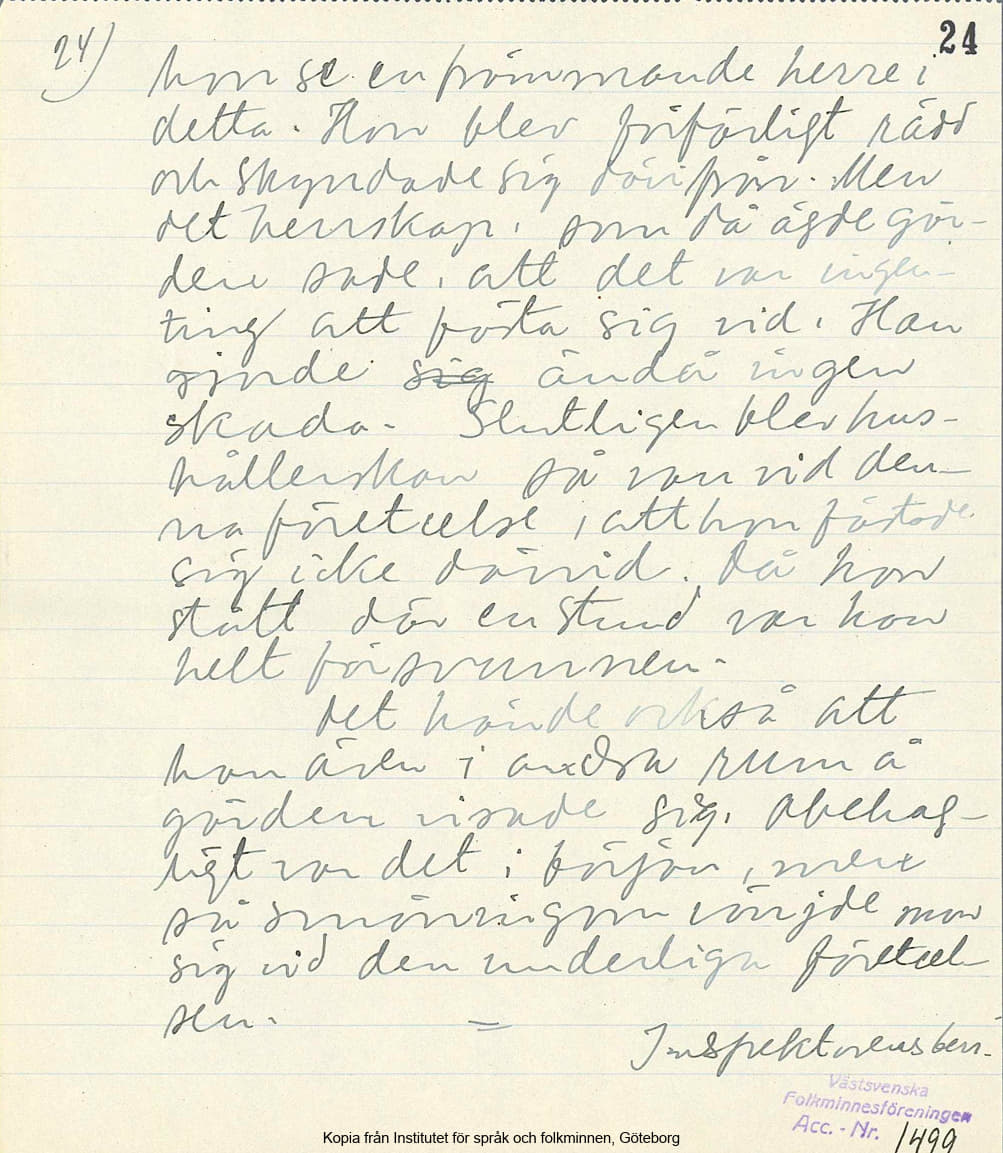 24) 24
hon se en främmande herre i
detta. Hon blev förfärligt rädd
och skyndade sig därifrån. Men
det herrskap, som då ägde går-
den sade, att det var ingen-
ting att fästa sig vid. Han
gjorde sig ändå ingen
skada. Slutligen blev hus-
hållerskan så van vid den-
na företeelse, att hon fästade
sig icke därvid. Då hon
stått där en stund var han
helt försvunnen.
Det hände också att
han även i andra rum å
gården visade sig. Obehag-
ligt var det i början, men
så småningom vänjde man
sig vid den underliga företeel-
sen. =
Inspektorens ber.
Västsvenska
Folkminnesföreningen
Acc. - Nr. 1499
Kopia från Institutet för språk och folkminnen, Göteborg